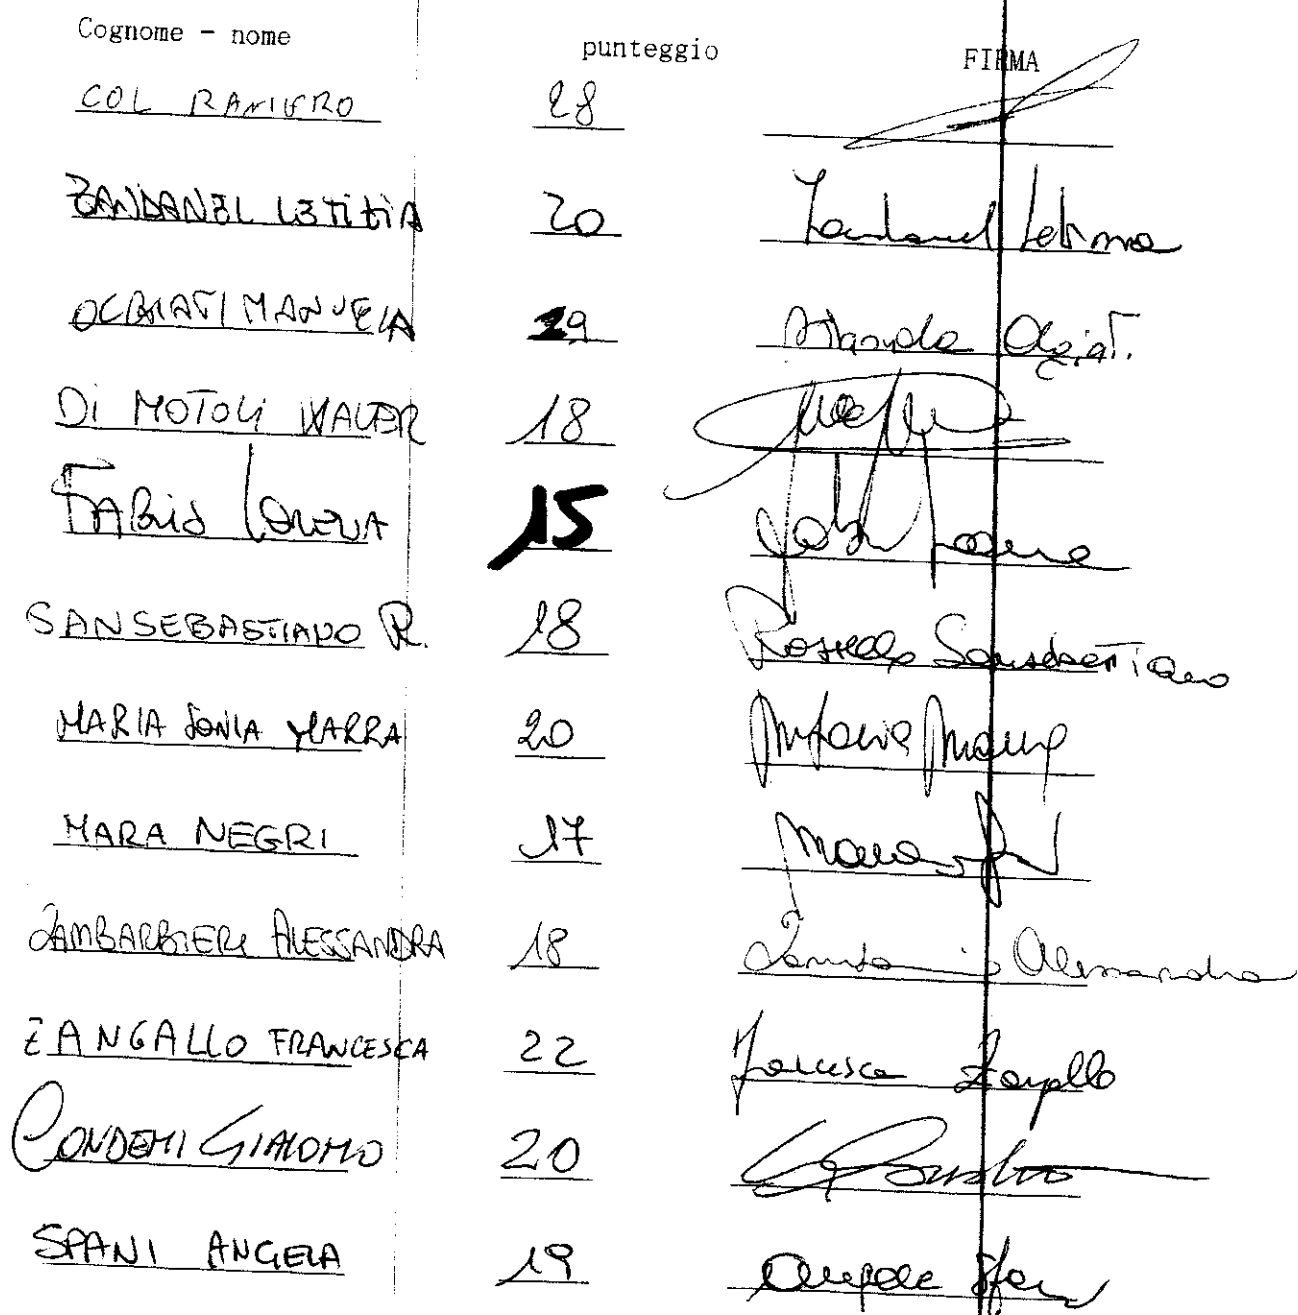 Cognome - nome punteggio FIRMA
COL RANIERO 28
ZANDANEL LETIZIA 20 Zandanel Letizia
MANUELA Manuela
DI MOTOLI WALTER 18
FABRIS LORENA 15
SANSEBASTIANO R. 18 Rossella Sansebastiano
MARIA SONIA MARRA 20
MARA NEGRI 17 Mara
ZAMBARBIERI ALESSANDRA 18 Alessandra
ZANGALLO FRANCESCA 22 Francesca Zangallo
CONDEMI GIACOMO 20
SPANI ANGELA 19 Angela